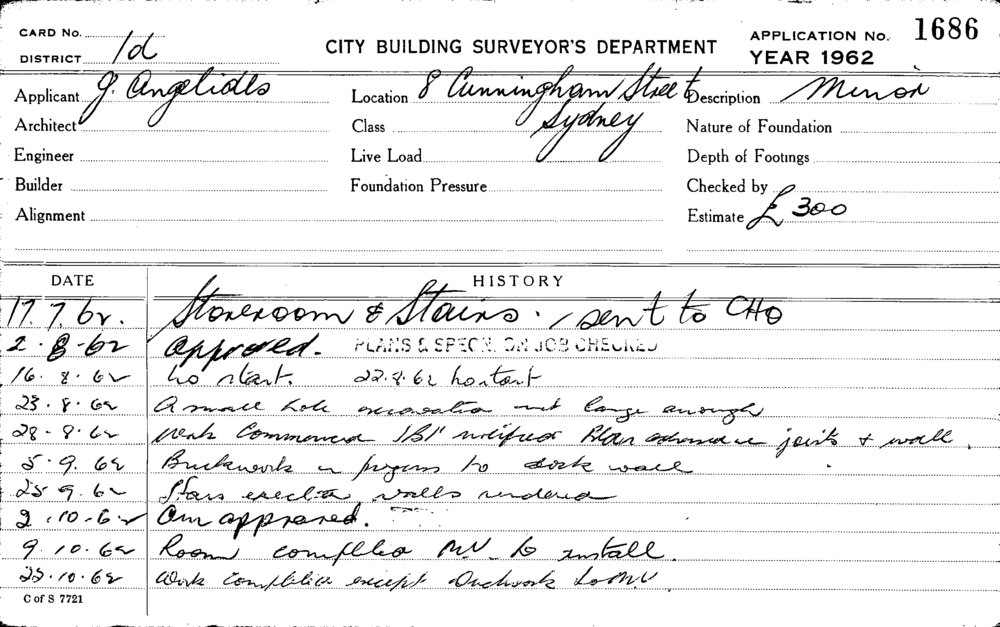 CARD No.
DISTRICT 1d
CITY BUILDING SURVEYOR'S DEPARTMENT
APPLICATION No. 1686
YEAR 1962
Applicant J. Angelides Location 8 Cunningham Street Description Minor
Architect Class Sydney Nature of Foundation
Engineer Live Load Depth of Footings
Builder Foundation Pressure Checked by
Alignment Estimate £300
DATE HISTORY
17.7.62. Storeroom & Stairs. sent to CHO
2.8.62 approved. PLANS & SPECN. ON JOB CHECKED
16.8.62 no start. 22.8.62 no start
23.8.62 A small hole excavation not large enough
28.8.62 Work Commenced notified Plan joists & wall.
5.9.62 Brickwork in progress to wall
25.9.62 Stairs erected walls rendered
2.10.62 approved.
9.10.62 Room completed M.V. to install.
23.10.62 Work completed except Ductwork to M.V
C of S 7721